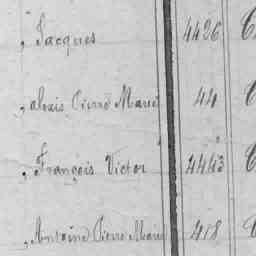 , Jacques 4426 C
, alexis Pierre Marie 44 C
, François Victor 4443 C
, Antoine Pierre Marie 418 C